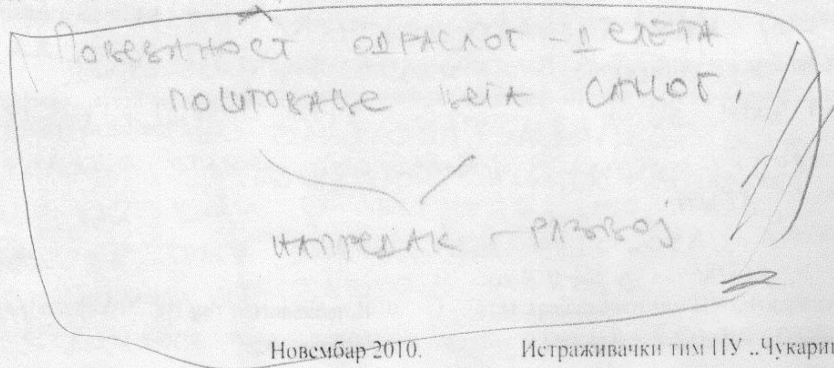 ПОВЕЗАНОСТ ОДРАСЛОГ - ДЕТЕТА
ПОШТОВАЊЕ ЊЕГА САМОГ,
НАПРЕДАК - РАЗВОЈ
Новембар 2010. Истраживачки тим ПУ „Чукариц